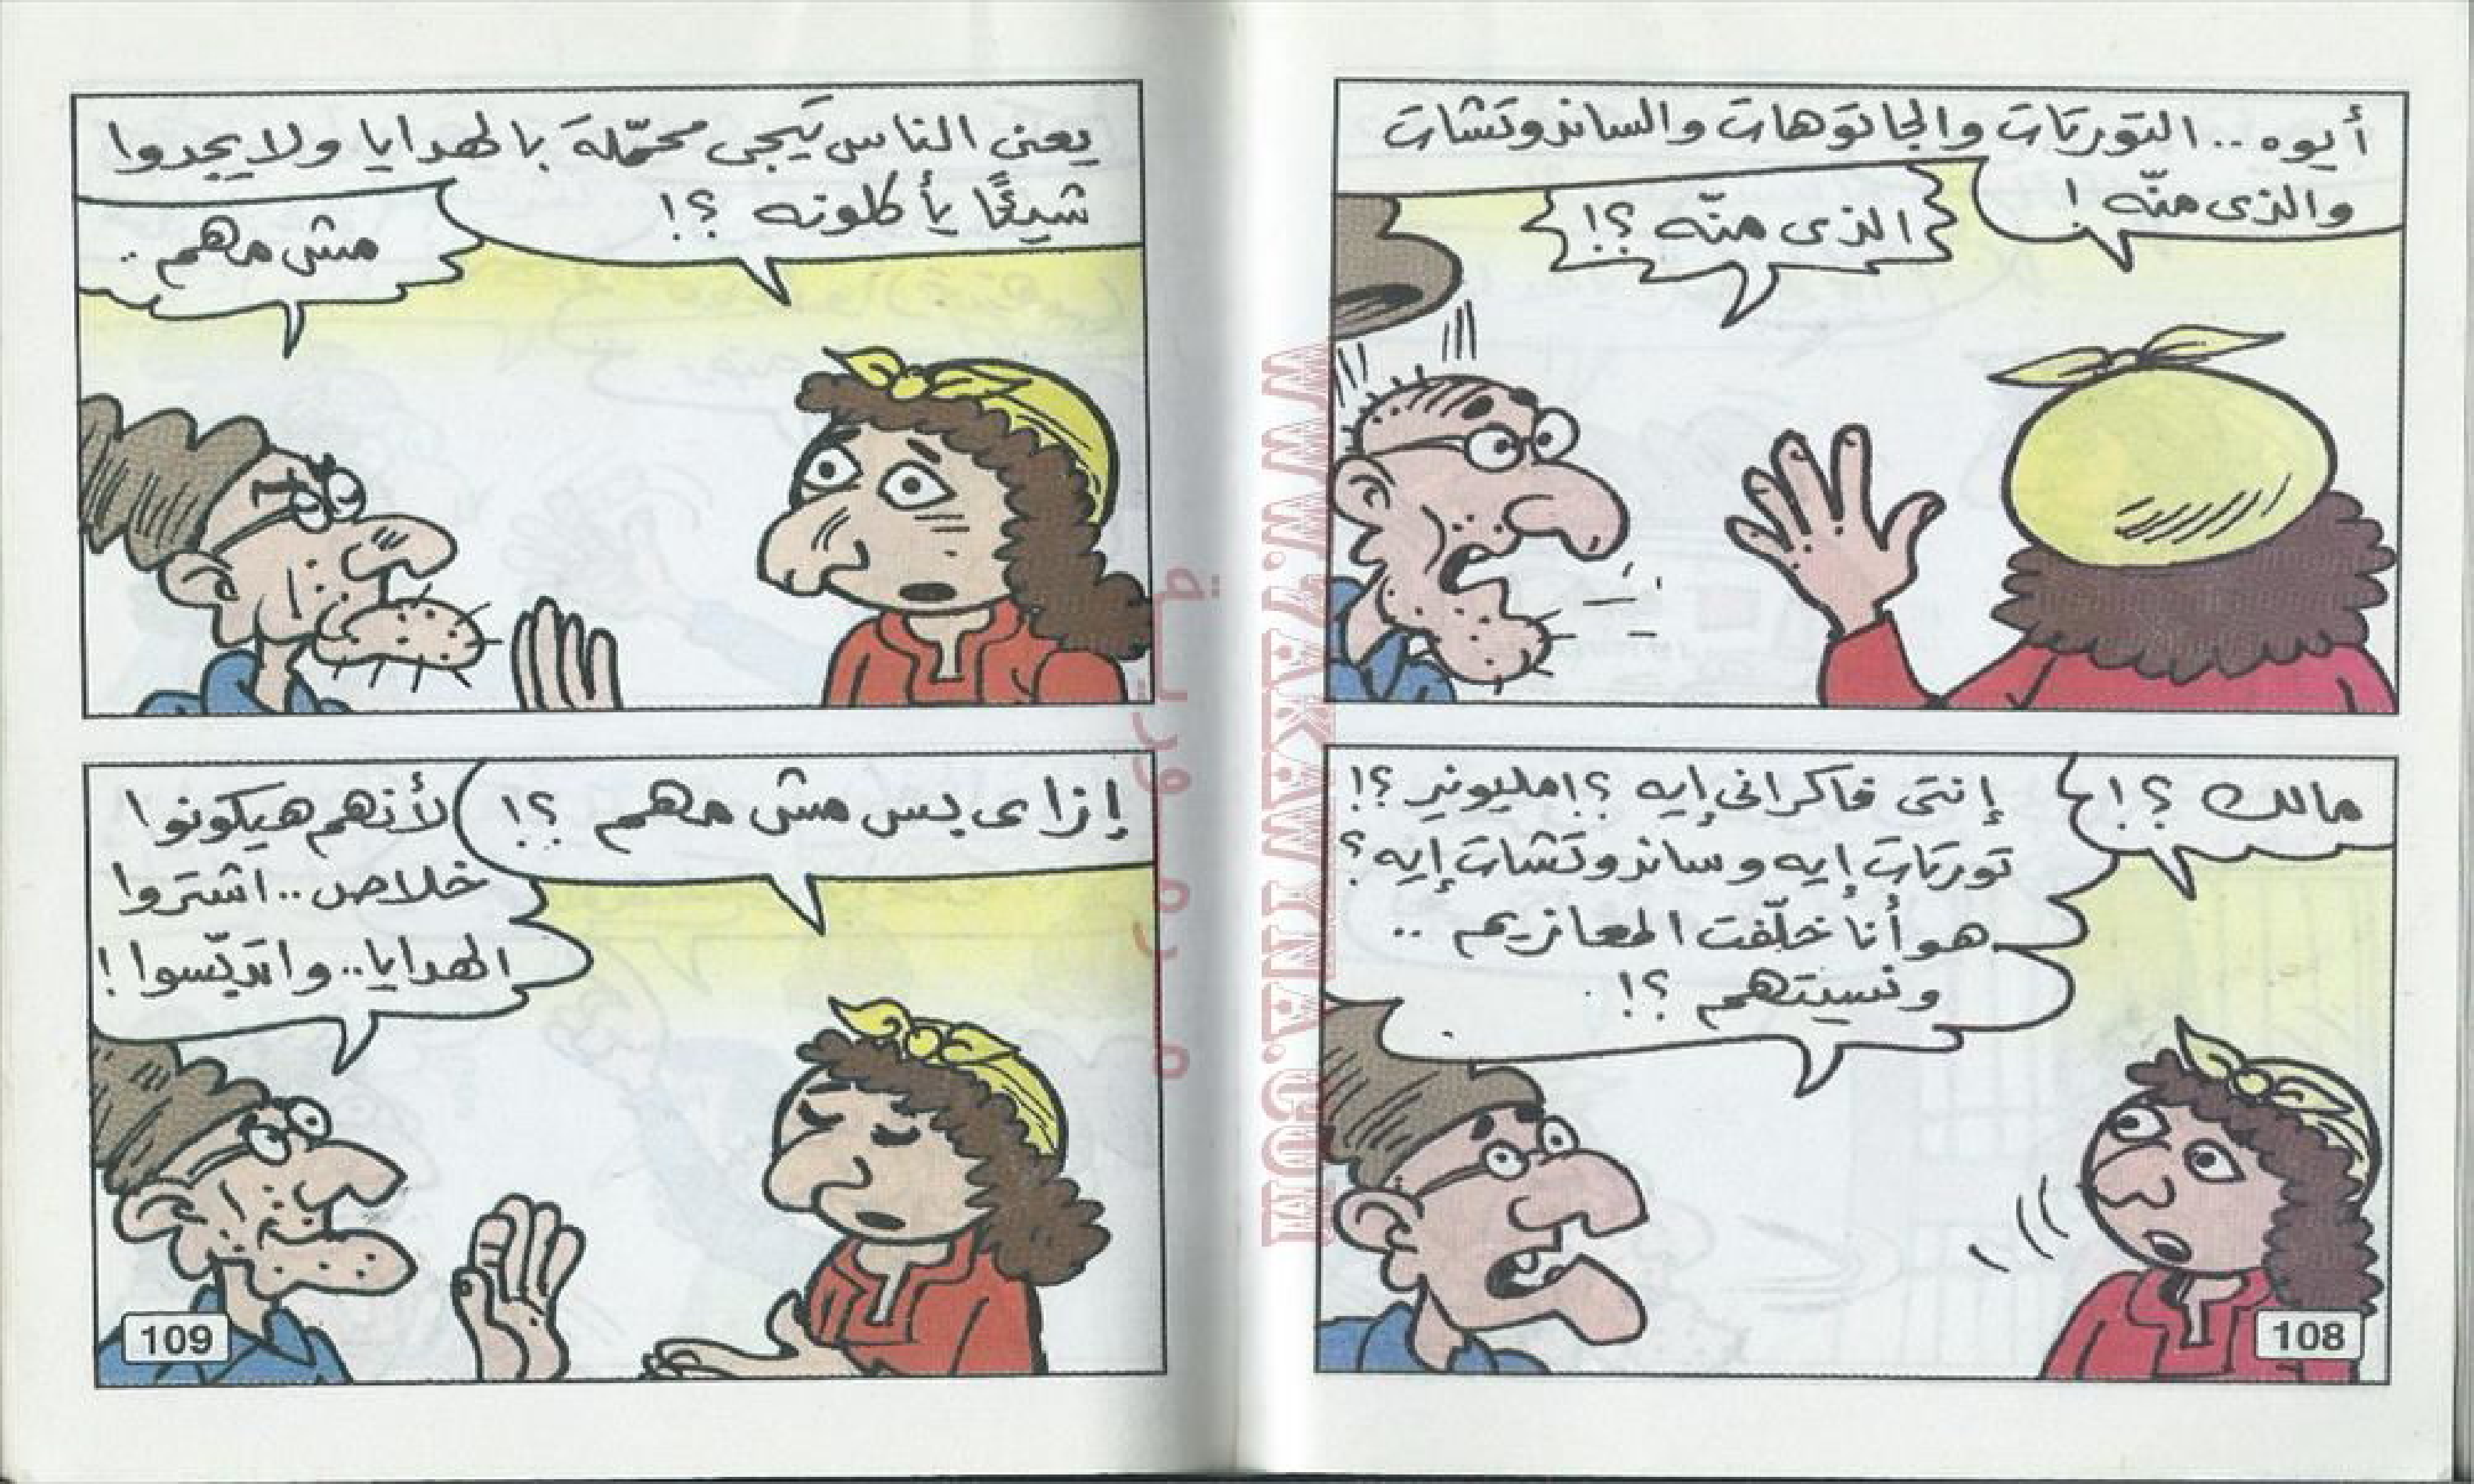 أيوه.. التورتات والجاتوهات والساندوتشات
والذى منّه !
الذى منّه ؟!
مالك ؟!
إنتى فاكرانى إيه ؟! مليونير ؟!
تورتات إيه وساندوتشات إيه ؟
هو أنا خلّفت المعازيم ..
ونسيتهم ؟!
108
يعنى الناس تيجى محمّلة بالهدايا ولا يجدوا
شيئًا يأكلونه ؟!
مش مهم ..
إزاى بس مش مهم ؟!
لأنهم هيكونوا
خلاص.. اشتروا
الهدايا.. واتدبّسوا !
109